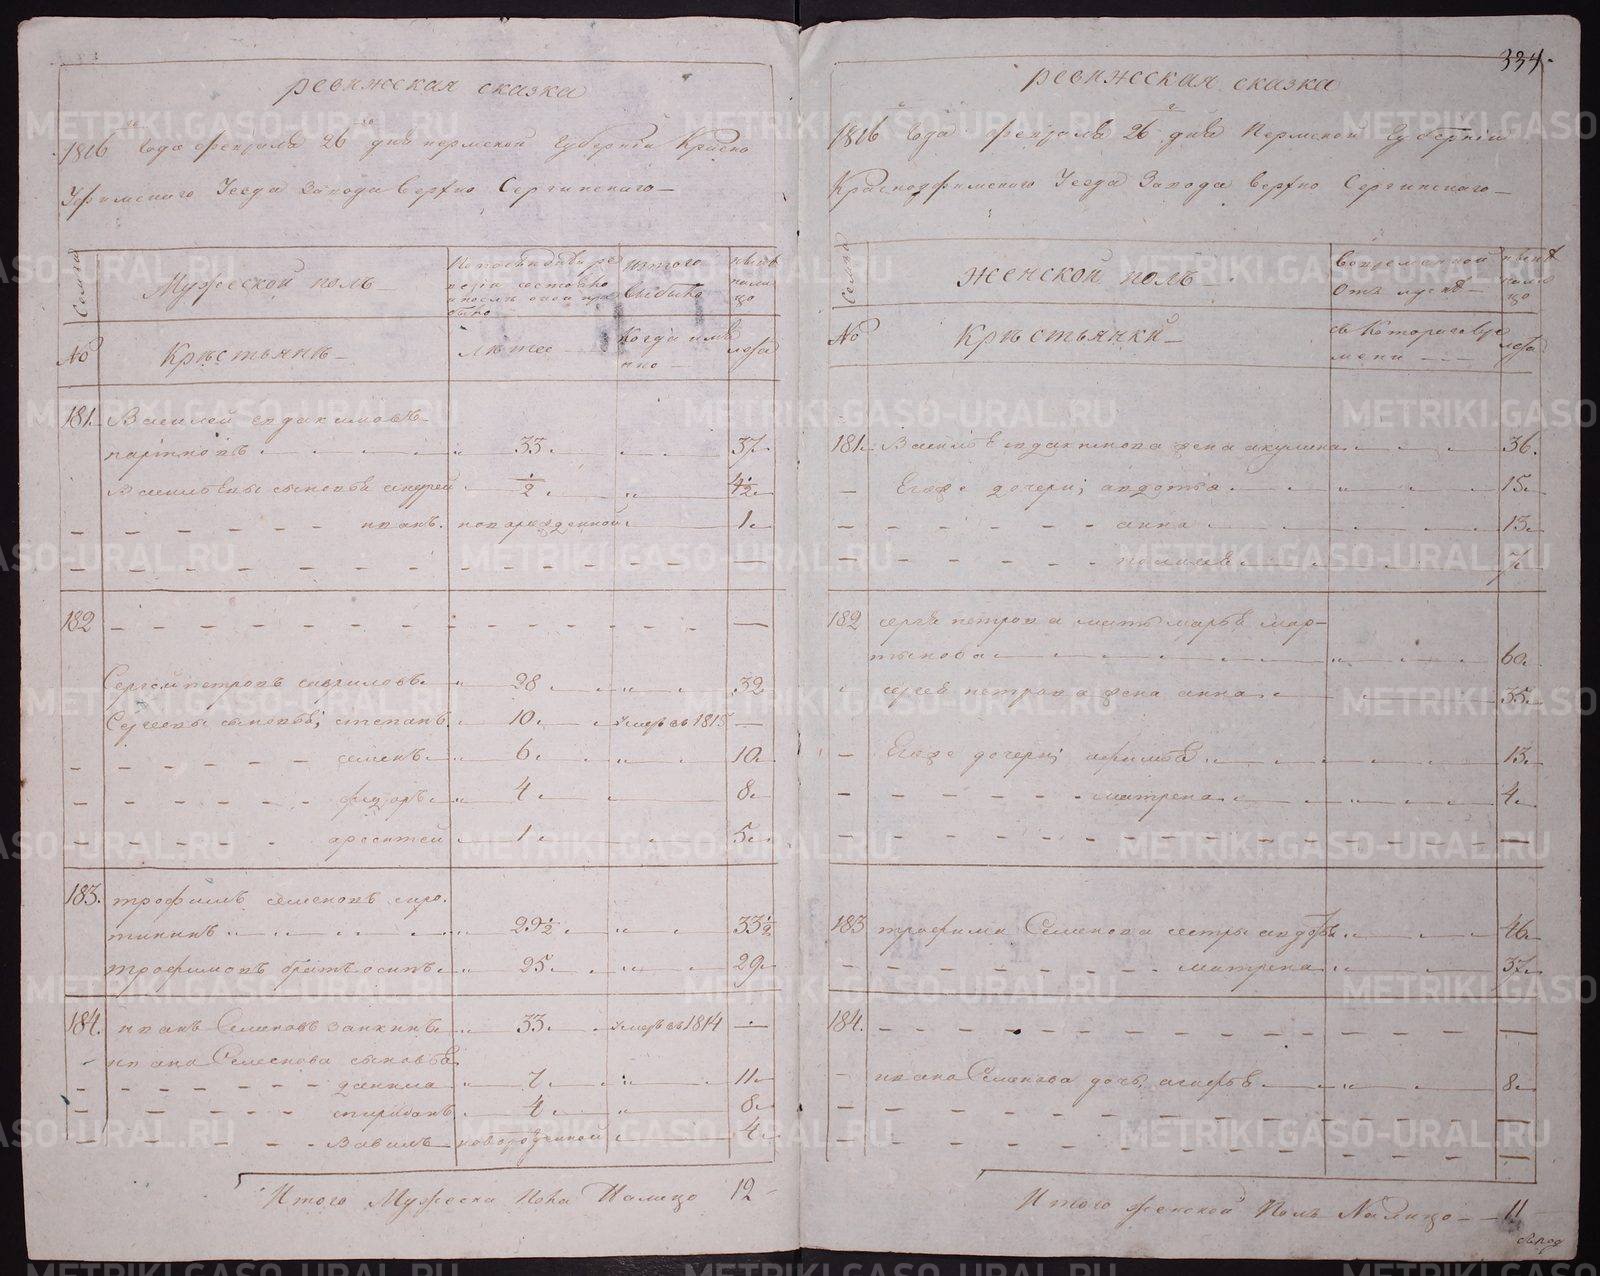 ревижская сказка
1816 го года февраля 26 го дня пермской губернїи Красно
Уфимского Уезда Завода Верхно Сергинскаго
Семьи
Мужеской полъ
По последней ре
визїи состояло
и после оной при
было
изтого
выбыло
ныне
нали
цо
№
Крѣстьянѣ
лѣта
Когда имя
нно
лета
181. Василей евдакимовъ
паршковъ 33 37
Васильевы сыновья андрей ½ 4½
иванъ. новарожденной 1
182
Сергей петровъ гавриловъ 28 32
Сергеевы сыновья; степанъ 10 умеръ въ 1815
семенъ 6 10
федоръ 4 8
арсентей 1 5
183. трофимъ семеновъ сиро.
тининъ 29½ 33½
трофимовъ братъ осипъ 25 29
184. иванъ Семеновъ заикинъ 33 умеръ въ 1814
ивана Семенова сыновья
данила 7 11
спиридонъ 4 8
Вавилъ новорожденной 4
Итого Мужеска Пола Налицо 12
334.
ревижская сказка
1816 г года февраля 26 г дня Пермской Губернїи
Красноуфимского Уезда Завода верхно Сергинскаго
Семьи
Женской полъ
Вовременной
Отлучке
ныне
нали
цо
№
Крѣстьянки
съ Котораго вре
мени
лета
181. Василья Евдакимова жена акулина 36.
Егоже дочери; авдотья 15
анна 13
пелагея 7
182 сергея петрова мать марья мар-
тынова 60
сергея петрова жена анна 35
Егоже дочери; афимья 13
матрена 4
183 трофима Семенова сестры авдотья 46
матрена 37
184.
ивана Семенова дочь агафья 8
Итого женской Полъ Налицо 11
METRIKI.GASO-URAL.RU